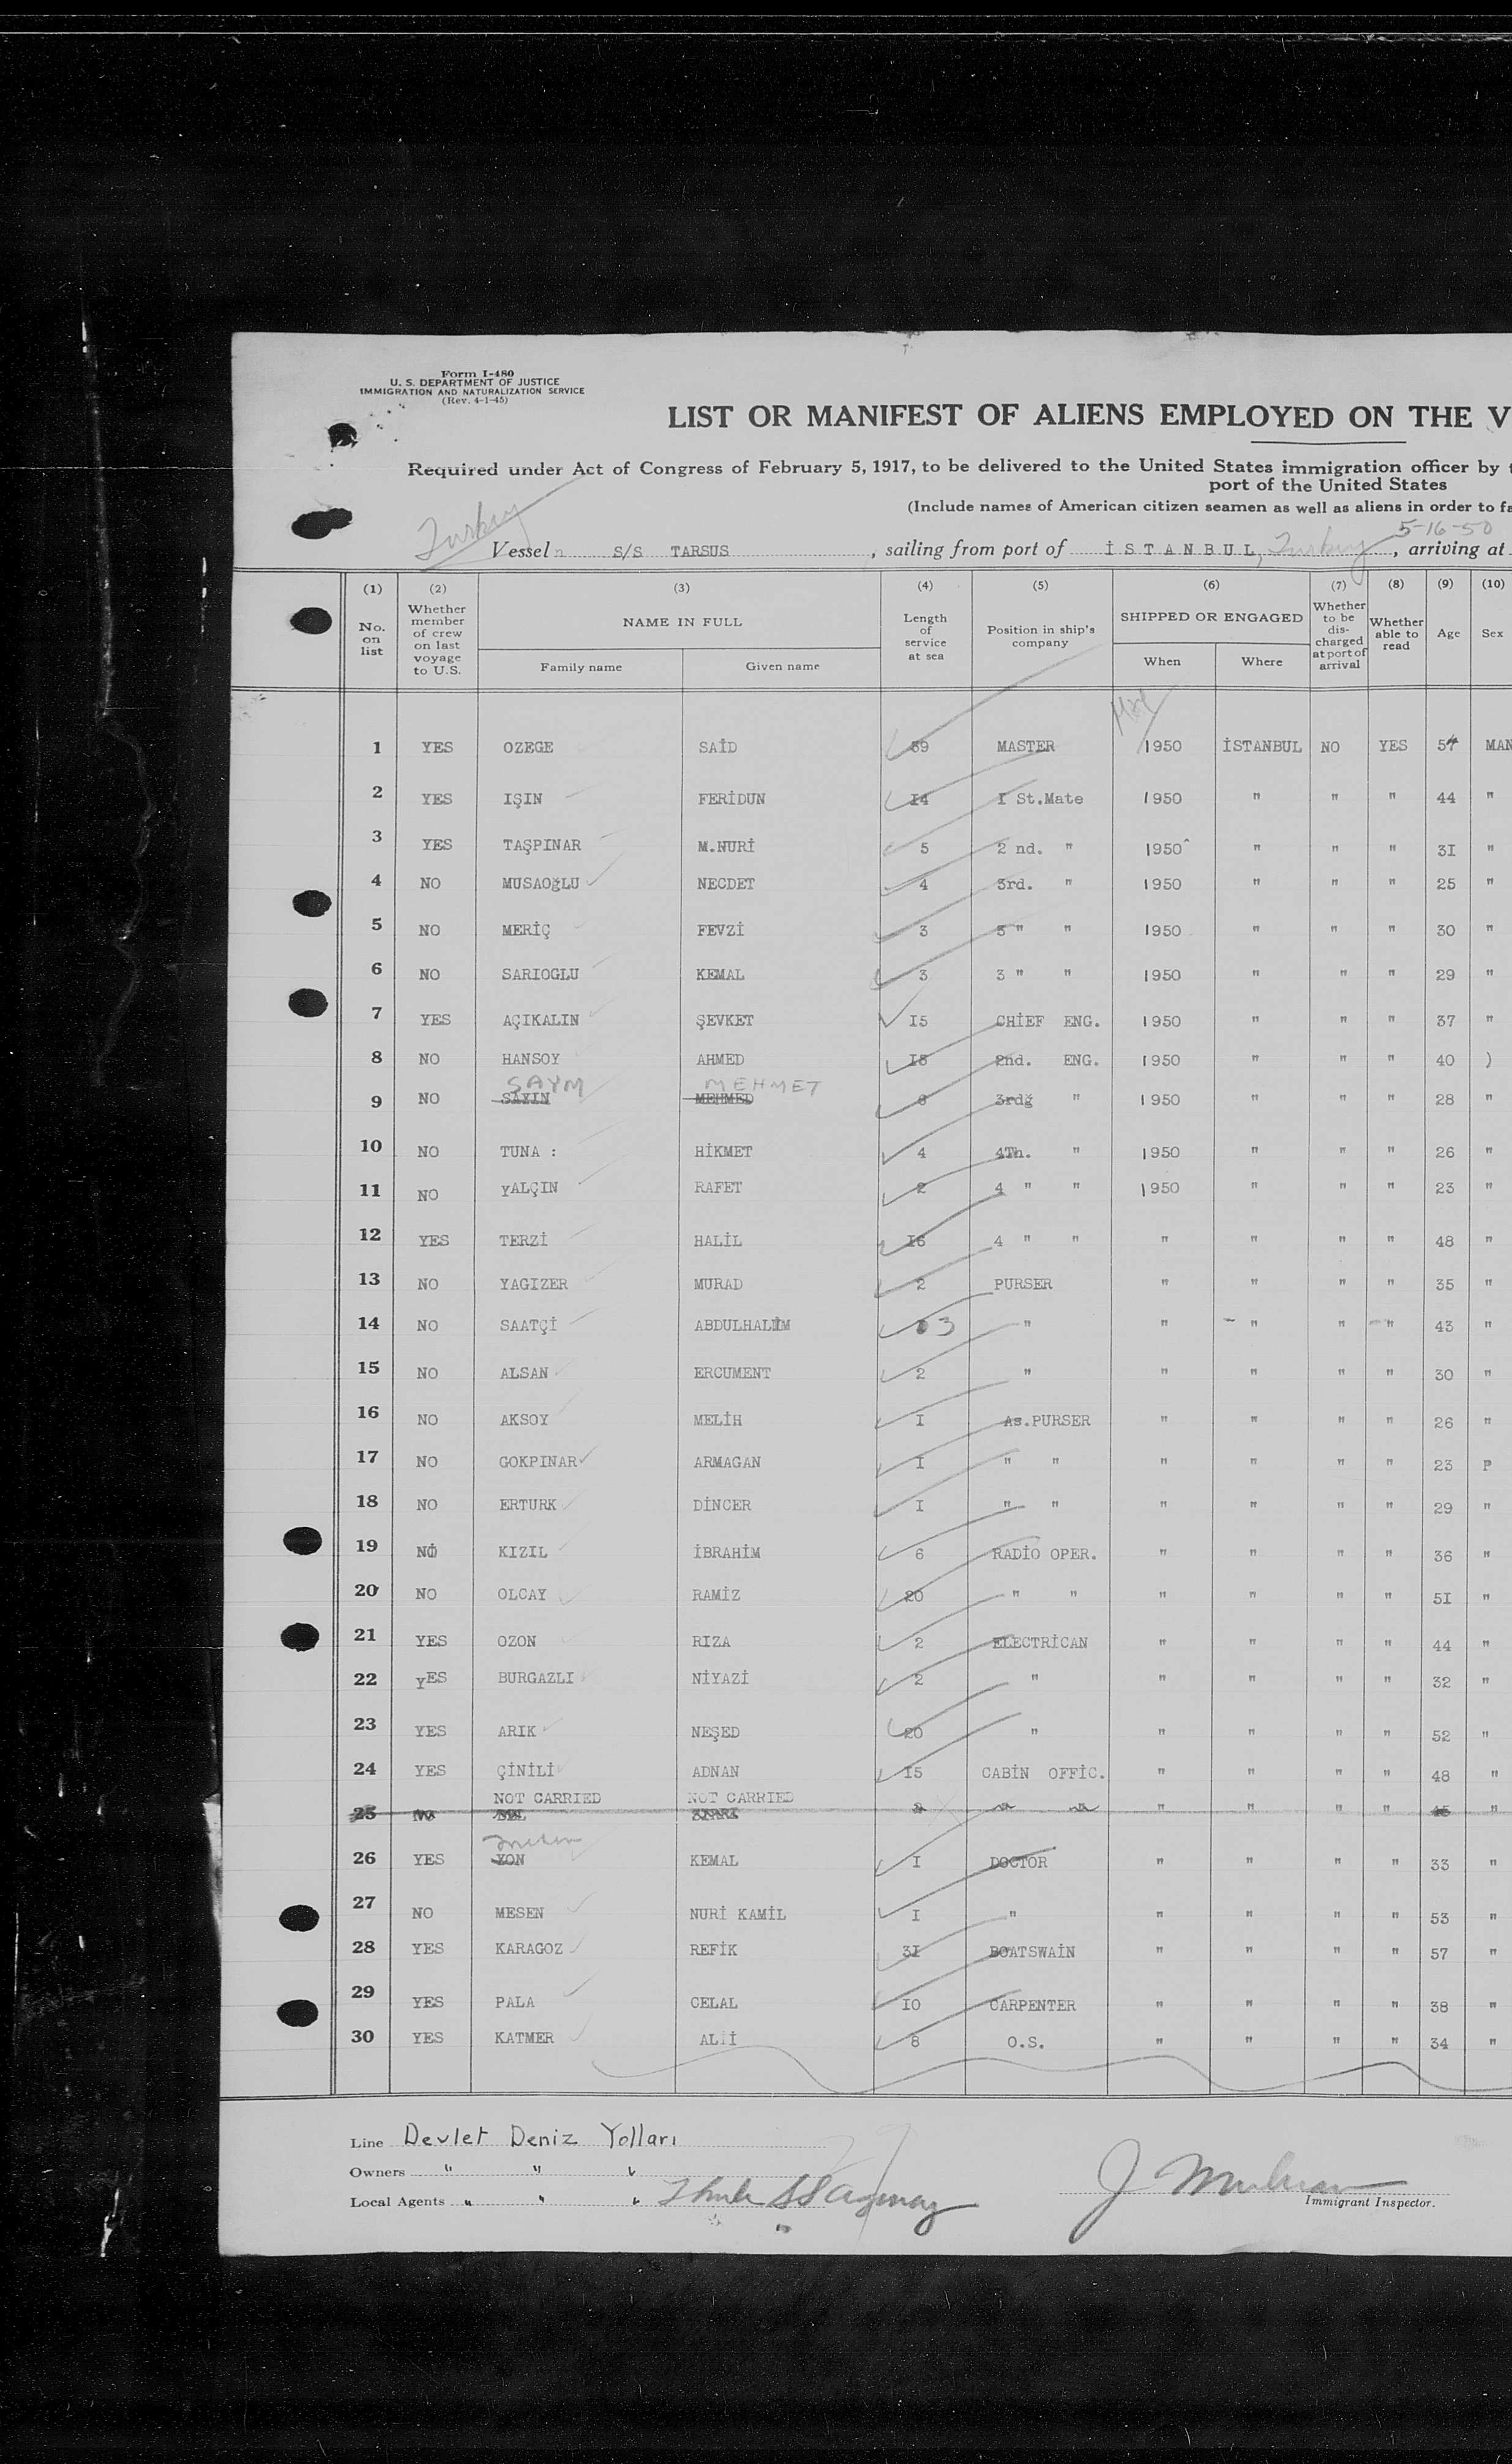 Form I-480
U. S. DEPARTMENT OF JUSTICE
IMMIGRATION AND NATURALIZATION SERVICE
(Rev. 4-1-45)
LIST OR MANIFEST OF ALIENS EMPLOYED ON THE V
Required under Act of Congress of February 5, 1917, to be delivered to the United States immigration officer by
port of the United States
(Include names of American citizen seamen as well as aliens in order to fa
Turkey
5-16-50
Vessel S/S TARSUS, sailing from port of İSTANBUL, Turkey, arriving at
(1) (2) (3) (4) (5) (6) (7) (8) (9) (10)
No. on list Whether member of crew on last voyage to U.S. NAME IN FULL Length of service at sea Position in ship's company SHIPPED OR ENGAGED Whether to be discharged at port of arrival Whether able to read Age Sex
Family name Given name When Where
1 YES OZEGE SAİD 39 MASTER 1950 İSTANBUL NO YES 54 MAN
2 YES IŞIN FERİDUN I4 I St.Mate 1950 " " " 44 "
3 YES TAŞPINAR M.NURİ 5 2 nd. " 1950 " " " 3I "
4 NO MUSAOğLU NECDET 4 3rd. " 1950 " " " 25 "
5 NO MERİÇ FEVZİ 3 3 " " 1950 " " " 30 "
6 NO SARIOGLU KEMAL 3 3 " " 1950 " " " 29 "
7 YES AÇIKALIN ŞEVKET I5 CHİEF ENG. 1950 " " " 37 "
8 NO HANSOY AHMED I8 2nd. ENG. 1950 " " " 40 )
SAYM MEHMET
9 NO SAYIN MEHMED 6 3rdğ " 1950 " " " 28 "
10 NO TUNA : HİKMET 4 4Th. " 1950 " " " 26 "
11 NO YALÇIN RAFET 2 4 " " 1950 " " " 23 "
12 YES TERZİ HALİL I6 4 " " " " " " 48 "
13 NO YAGIZER MURAD 2 PURSER " " " " 35 "
14 NO SAATÇİ ABDULHALİM 3 " " " " " 43 "
15 NO ALSAN ERCUMENT 2 " " " " " 30 "
16 NO AKSOY MELİH I As.PURSER " " " " 26 "
17 NO GOKPINAR ARMAGAN I " " " " " " 23 P
18 NO ERTURK DİNCER I " " " " " " 29 "
19 NO KIZIL İBRAHİM 6 RADİO OPER. " " " " 36 "
20 NO OLCAY RAMİZ 20 " " " " " " 5I "
21 YES OZON RIZA 2 ELECTRİCAN " " " " 44 "
22 YES BURGAZLI NİYAZİ 2 " " " " " 32 "
23 YES ARIK NEŞED 20 " " " " " 52 "
24 YES ÇİNİLİ ADNAN I5 CABİN OFFİC. " " " " 48 "
NOT CARRIED NOT CARRIED
25 NO " " " " " " 45 "
26 YES YON KEMAL I DOCTOR " " " " 33 "
27 NO MESEN NURİ KAMİL I " " " " " 53 "
28 YES KARAGOZ REFİK 3I BOATSWAİN " " " " 57 "
29 YES PALA CELAL IO CARPENTER " " " " 38 "
30 YES KATMER ALİ 8 O.S. " " " " 34 "
Line Devlet Deniz Yolları
Owners " " "
Local Agents " " "
Immigrant Inspector.